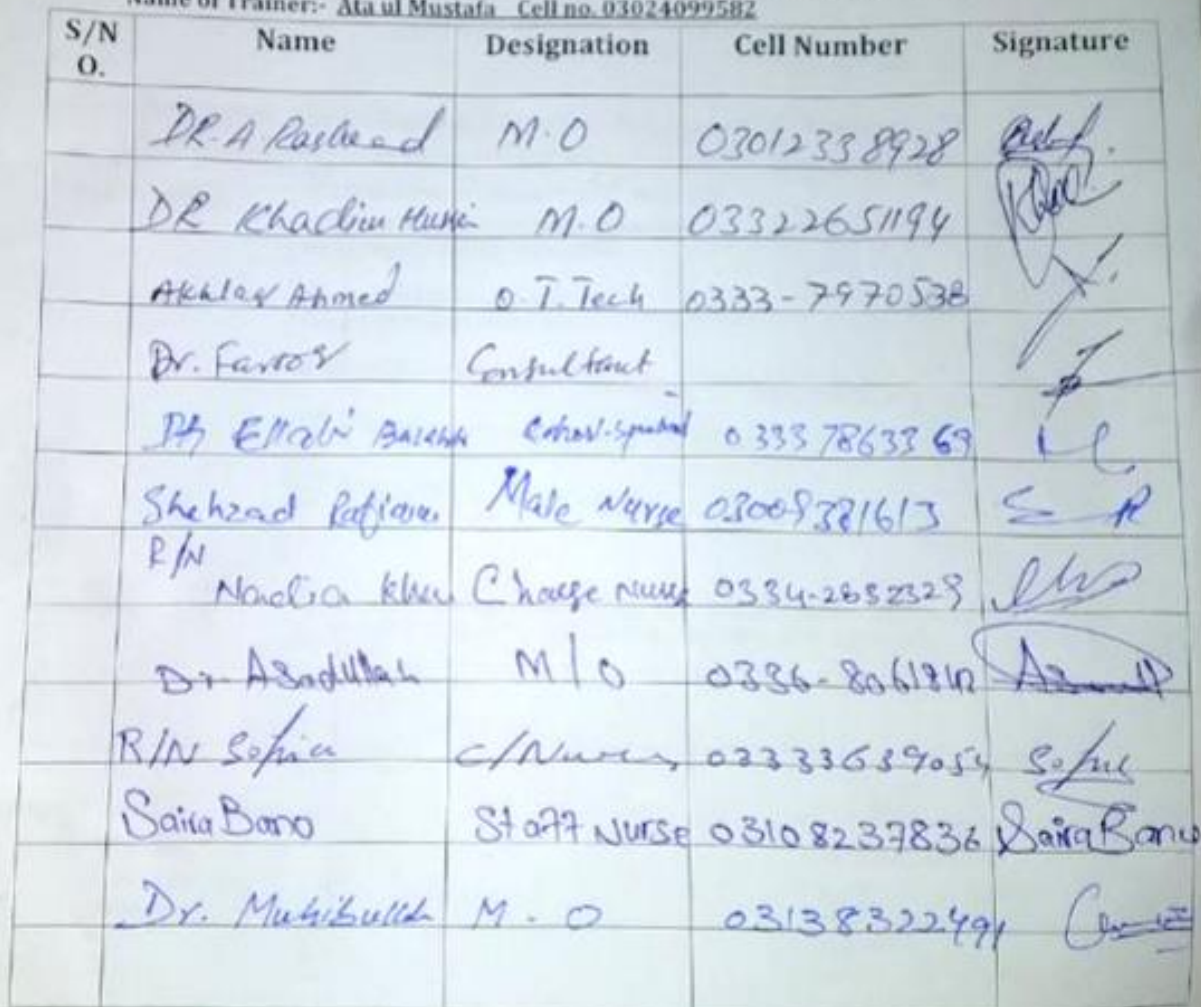 Name of Trainer:- Ata ul Mustafa Cell no. 03024099582
S/N Name Designation Cell Number Signature
O.
DR. A Rasheed M.O 03012338928
DR Khadim Hussain M.O 03322651194
Akhlaq Ahmed O.T. Tech 0333-7970538
Dr. Farooq Consultant
03337863369
Shehzad Male Nurse 03009381613
R/N
Nadia Khan Charge Nurse 0334-2652329
Dr. Asadullah M/O 0336-
R/N Sofia C/Nurse Sofia
Saira Bano Staff Nurse 03108237836 Saira Bano
Dr. Muhibullah M.O 03138322491